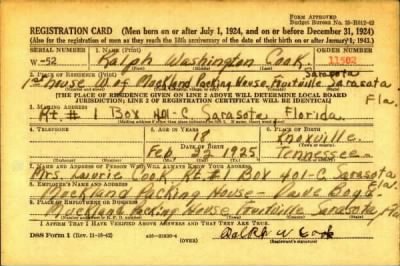 FORM APPROVED
Budget Bureau No. 33-R012-42
REGISTRATION CARD — (Men born on or after July 1, 1924, and on or before December 31, 1924)
(Also for the registration of men as they reach the 18th anniversary of the date of their birth on or after January 1, 1943.)
SERIAL NUMBER 1. NAME (Print) ORDER NUMBER
W -52 Ralph Washington Cook 11502
2. PLACE OF RESIDENCE (Print) Sarasota
1st house W of Packing House, Fruitville Sarasota Fla.
[THE PLACE OF RESIDENCE GIVEN ON LINE 2 ABOVE WILL DETERMINE LOCAL BOARD
JURISDICTION; LINE 2 OF REGISTRATION CERTIFICATE WILL BE IDENTICAL]
3. MAILING ADDRESS
Rt. # 1 Box 401-C Sarasota Florida.
4. TELEPHONE 5. AGE IN YEARS 6. PLACE OF BIRTH
18 Knoxville
DATE OF BIRTH
Feb 22 1925 Tennessee
7. NAME AND ADDRESS OF PERSON WHO WILL ALWAYS KNOW YOUR ADDRESS
Mrs. Laurie Cook Rt. # 1 Box 401-C Sarasota Fla.
8. EMPLOYER'S NAME AND ADDRESS
Packing House - Dave
9. PLACE OF EMPLOYMENT OR BUSINESS
Packing House Fruitville Sarasota Fla
I AFFIRM THAT I HAVE VERIFIED ABOVE ANSWERS AND THAT THEY ARE TRUE.
DSS Form 1 (Rev. 11-16-42) (OVER) Ralph W Cook
(Registrant's signature)